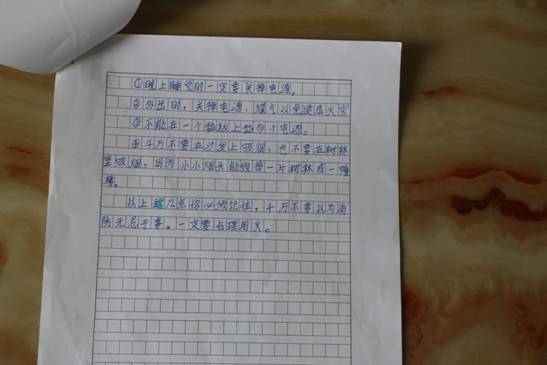 ①晚上睡觉时一定要关掉电源。
②外出时,关掉电源、煤气以免造成火灾
③不能在一个插板上插多个电源。
④千万不要在沙发上吸烟,也不要在树林
里吸烟,因为小小烟头能毁掉一片树林和一幢
楼。
以上这几点你必须记住,千万不要以为消
防无忌于事。一定要合理用火。